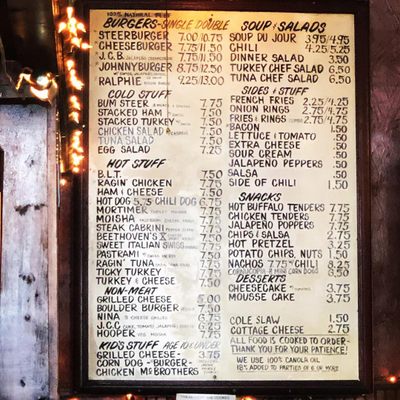 100% NATURAL BEEF
BURGERS-SINGLE DOUBLE
STEERBURGER 7.00 10.75
CHEESEBURGER 7.75 11.50
J.C.B. 7.75 11.50
JOHNNYBURGER 8.75 12.50
RALPHIE 9.25 13.00
COLD STUFF
BUM STEER 7.75
STACKED HAM 7.75
STACKED TURKEY 7.75
CHICKEN SALAD 7.75
TUNA SALAD 7.75
EGG SALAD 7.25
HOT STUFF
B.L.T. 7.75
RAGIN' CHICKEN 7.75
HAM & CHEESE 7.75
HOT DOG 5.75 CHILI DOG 6.75
MORTIMER 7.75
MOISHA 7.75
STEAK CABRINI 7.75
BEETHOVEN'S X 7.75
SWEET ITALIAN SWISS 7.75
PASTRAMI 7.75
RAGIN' TUNA 7.75
TICKY TURKEY 7.75
TURKEY & CHEESE 7.75
NON-MEAT
GRILLED CHEESE 5.00
BOULDER BURGER 7.50
NINA 6.25
J.C.C. 6.25
HOOPER 7.75
KID'S STUFF AGE 10 & UNDER
GRILLED CHEESE- 3.75
CORN DOG - BURGER-
CHICKEN McBROTHERS
SOUP & SALADS
SOUP DU JOUR 3.95/4.95
CHILI 4.25/5.25
DINNER SALAD 3.50
TURKEY CHEF SALAD 6.50
TUNA CHEF SALAD 6.50
SIDES & STUFF
FRENCH FRIES 2.25/4.25
ONION RINGS 2.75/4.75
FRIES & RINGS 2.75/4.75
BACON 1.50
LETTUCE & TOMATO .50
EXTRA CHEESE .50
SOUR CREAM .50
JALAPEÑO PEPPERS .50
SALSA .50
SIDE OF CHILI 1.50
SNACKS
HOT BUFFALO TENDERS 7.75
CHICKEN TENDERS 7.75
JALAPEÑO POPPERS 7.75
CHIPS & SALSA 2.75
HOT PRETZEL 3.25
POTATO CHIPS, NUTS 1.50
NACHOS 7.75 W/ CHILI 8.25
CORNUCOPIA-8 MINI CORN DOGS 6.50
DESSERTS
CHEESECAKE 3.75
MOUSSE CAKE 3.75
COLE SLAW 1.50
COTTAGE CHEESE 2.75
ALL FOOD IS COOKED TO ORDER-
THANK YOU FOR YOUR PATIENCE!
WE USE 100% CANOLA OIL
18% ADDED TO PARTIES OF 6 OR MORE